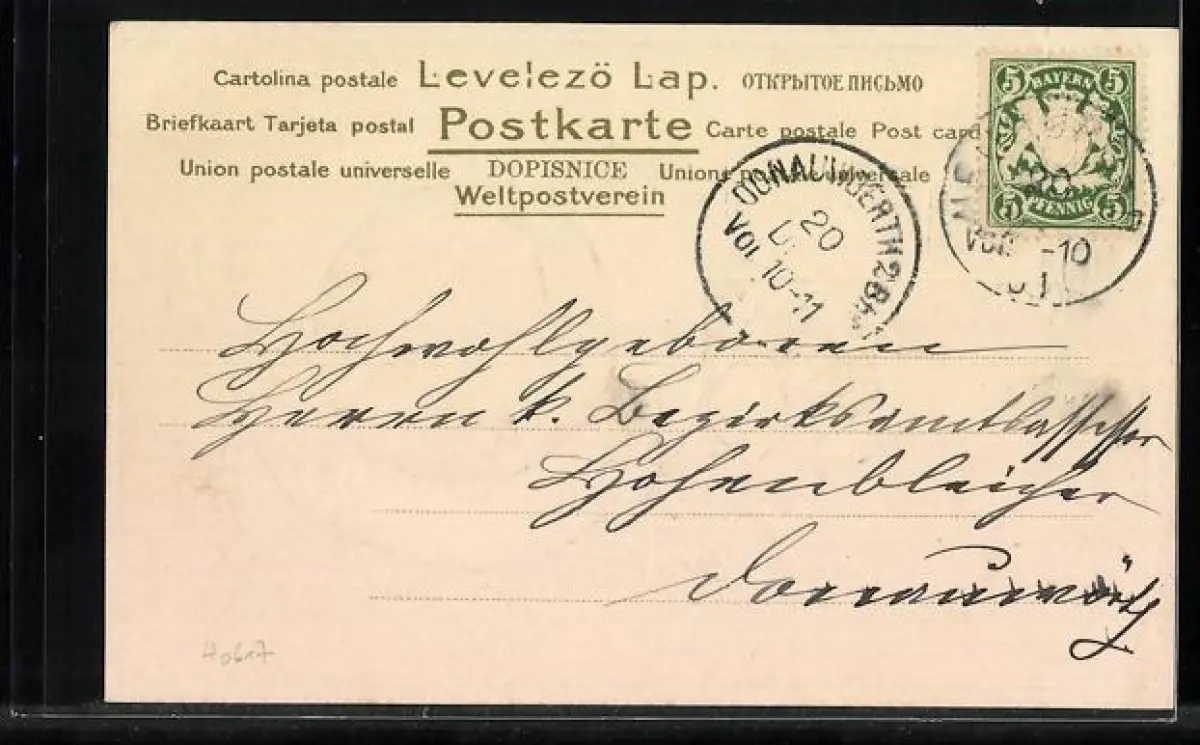 Cartolina postale Levelező Lap. ОТКРЫТОЕ ПИСЬМО
Briefkaart Tarjeta postal Postkarte Carte postale Post card
Union postale universelle DOPISNICE Union postale universale
Weltpostverein
5 BAYERN 5
5 PFENNIG 5
DONAUWOERTH 2 BH
20
VOR 10-11
20
VOR -10
01
Hochwohlgeboren
Herrn k. Bezirksamtsassessor
Hohenbleicher
Donauwörth